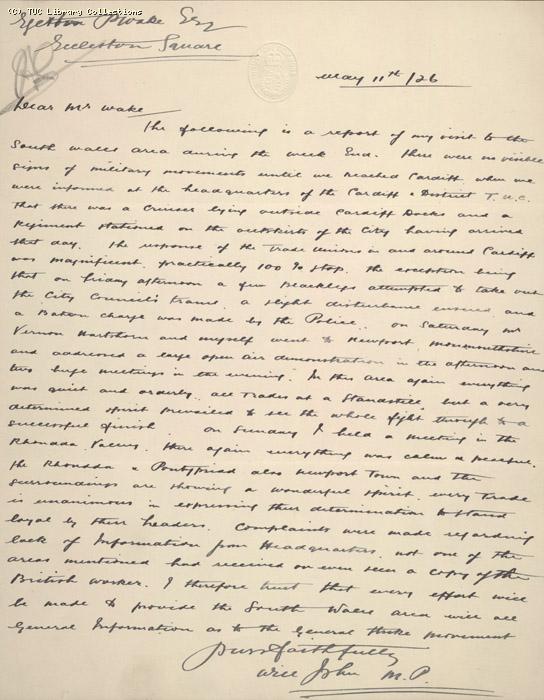 (C) TUC Library Collections
Egerton P Wake Esq
Eccleston Square
May 11th /26
Dear Mr Wake
The following is a report of my visit to the
South Wales area during the week End. There were no visible
signs of military movements until we reached Cardiff, when we
were informed at the headquarters of the Cardiff & District T.U.C.
that there was a Cruiser lying outside Cardiff Docks and a
Regiment stationed on the outskirts of the City having arrived
that day. The response of the Trade Unions in and around Cardiff
was magnificent, practically 100 % stop, the exception being
that on Friday afternoon a few Blacklegs attempted to take out
the City Council's trams, a slight disturbance ensued, and
a Baton charge was made by the Police. On Saturday Mr
Vernon Hartshorn and myself went to Newport, Monmouthshire
and addressed a large open air demonstration in the afternoon and
two huge meetings in the evening. In this area again everything
was quiet and orderly, all Trades at a Standstill, but a very
determined spirit prevailed to see the whole fight through to a
successful finish. On Sunday I held a meeting in the
Rhondda Valley. Here again everything was calm & peaceful.
The Rhondda & Pontypridd also Newport Town and the
surroundings are showing a wonderful spirit, every trade
is unanimous in expressing their determination to stand
loyal by their Leaders. Complaints were made regarding
lack of Information from Headquarters, not one of the
areas mentioned had received or even seen a copy of the
British Worker. I therefore trust that every effort will
be made to provide the South Wales area will all
General Information as to the General Strike movement
Yours faithfully
Will John M.P.